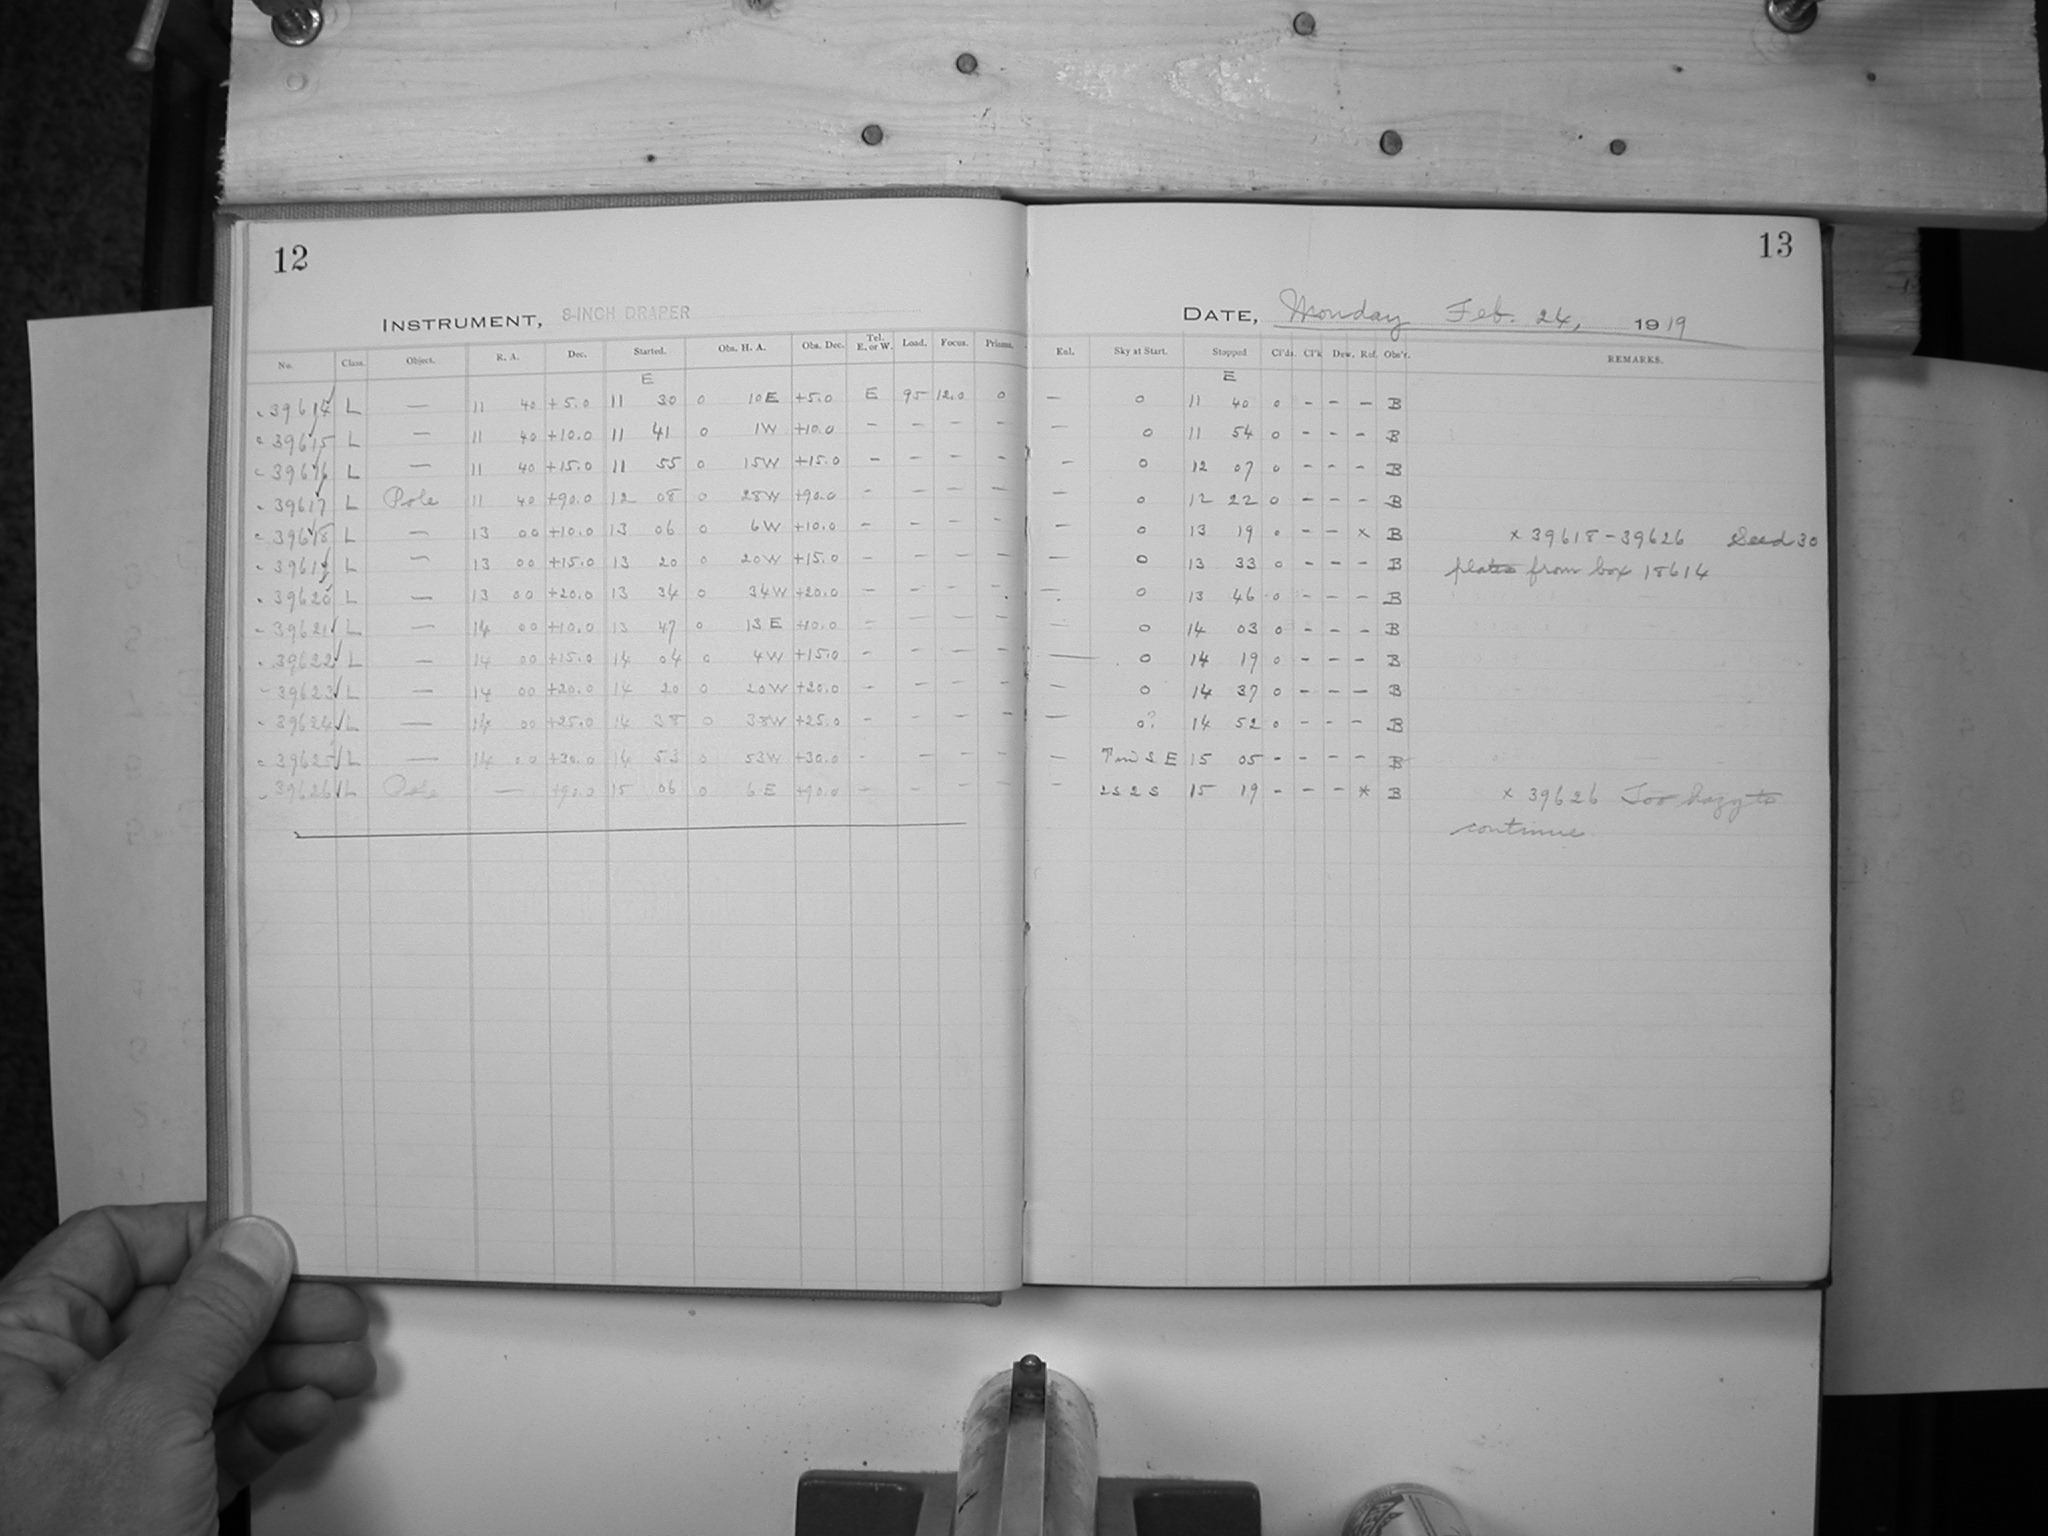 12
INSTRUMENT, 8-INCH DRAPER
No. Class. Object. R. A. Dec. Started. Obs. H. A. Obs. Dec. Tel. E. or W. Load. Focus. Prisms.
E
39614 L — 11 40 +5.0 11 30 0 10E +5.0 E 95 12.0 0
39615 L — 11 40 +10.0 11 41 0 1W +10.0 — — — —
39616 L — 11 40 +15.0 11 55 0 15W +15.0 — — — —
39617 L Pole 11 40 +90.0 12 08 0 28W +90.0 — — — —
39618 L — 13 00 +10.0 13 06 0 6W +10.0 — — — —
39619 L — 13 00 +15.0 13 20 0 20W +15.0 — — — —
39620 L — 13 00 +20.0 13 34 0 34W +20.0 — — — —
39621 L — 14 00 +10.0 13 47 0 13E +10.0 — — — —
39622 L — 14 00 +15.0 14 04 0 4W +15.0 — — — —
39623 L — 14 00 +20.0 14 20 0 20W +20.0 — — — —
39624 L — 14 00 +25.0 14 38 0 38W +25.0 — — — —
39625 L — 14 00 +30.0 14 53 0 53W +30.0 — — — —
39626 L Pole — +90.0 15 06 0 6E +90.0 — — — —
13
DATE, Monday Feb. 24, 1919
Enl. Sky at Start. Stopped Cl'ds. Cl'k Dew. Ref. Obs'r. REMARKS.
E
— 0 11 40 0 - - - B
— 0 11 54 0 - - - B
— 0 12 07 0 - - - B
— 0 12 22 0 - - - B
— 0 13 19 0 - - x B x 39618-39626 Seed 30
— 0 13 33 0 - - - B plates from box 18614
— 0 13 46 0 - - - B
— 0 14 03 0 - - - B
— 0 14 19 0 - - - B
— 0 14 37 0 - - - B
— 0? 14 52 0 - - - B
— S E 15 05 - - - - B
— 2S 2 S 15 19 - - - * B x 39626 Too hazy to
continue